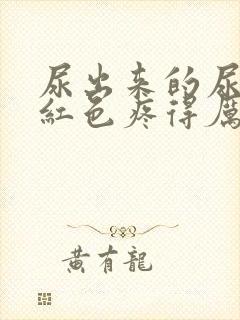 尿出来的尿
紅色疼得厲
黄有龍